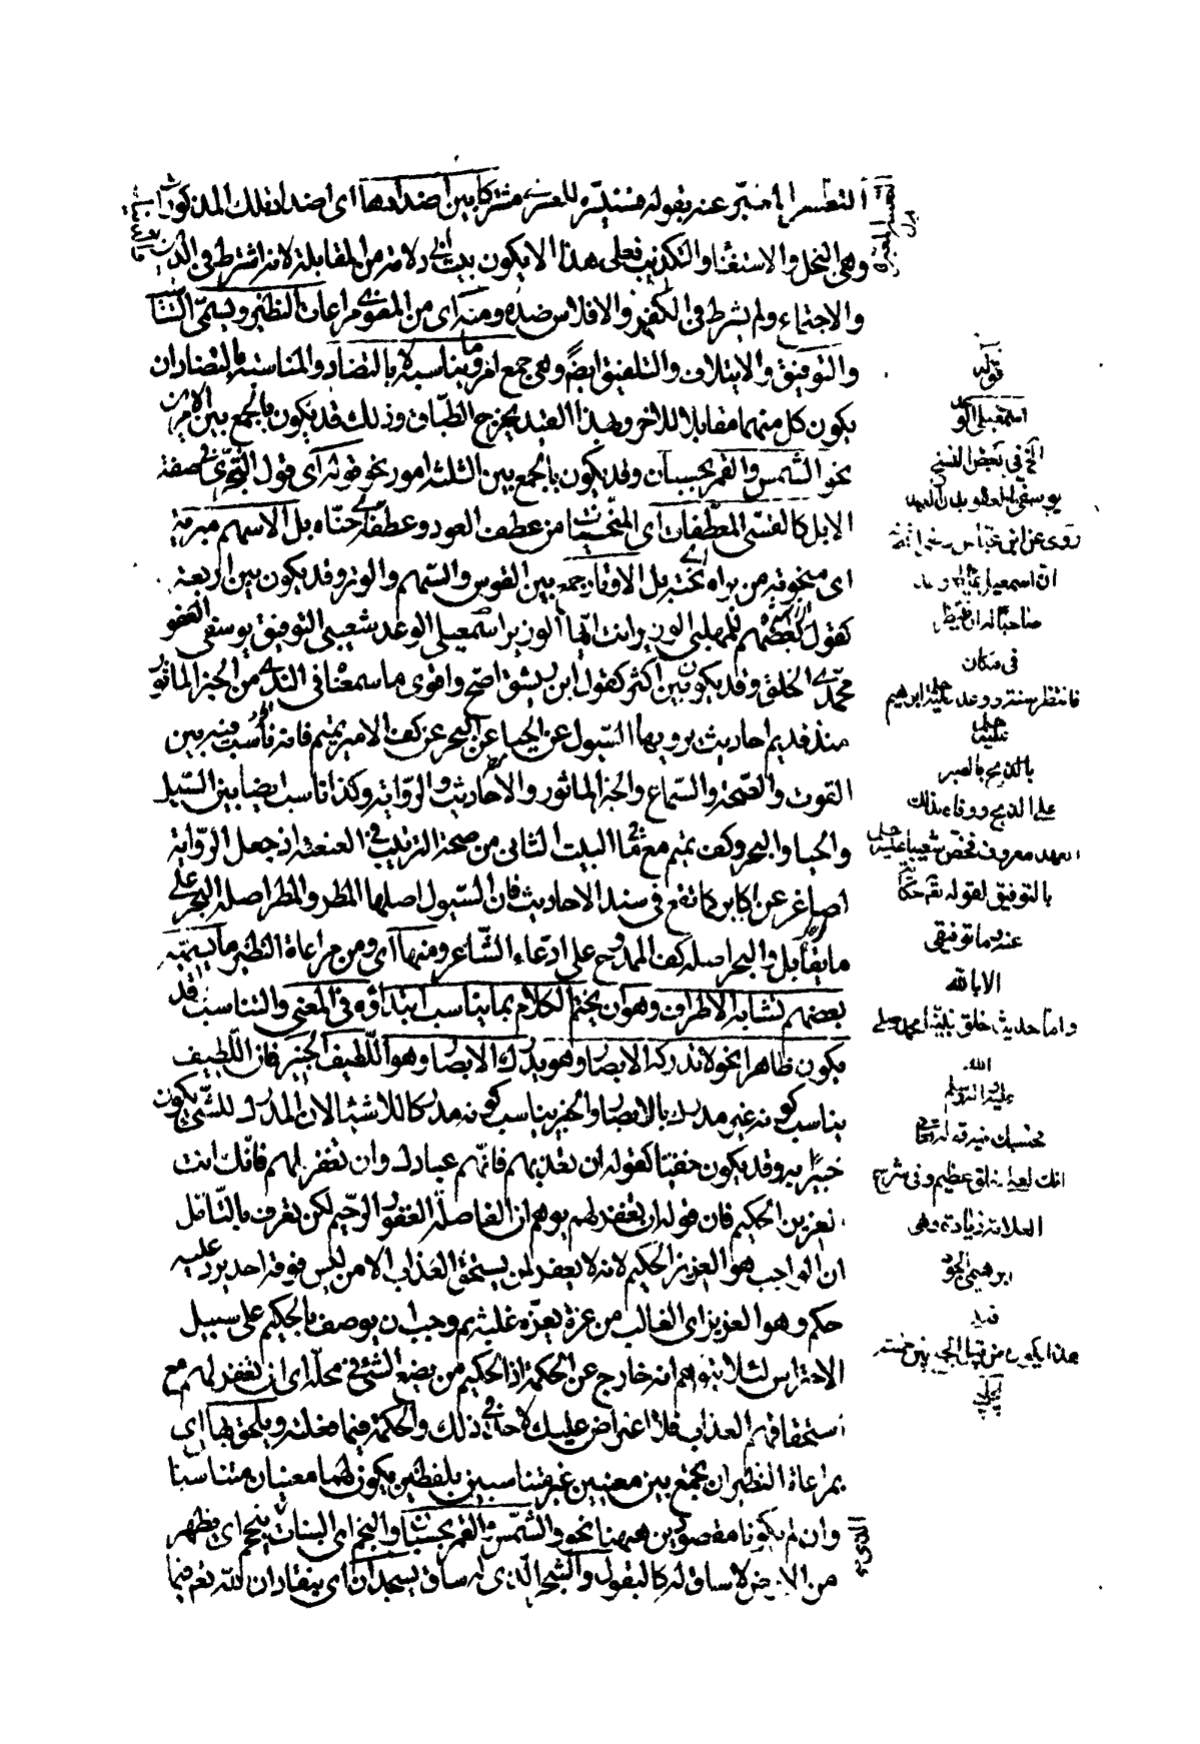 التعسير المعبّر عنه بقوله فسنيسّره للعسرى مشتركا بين اضدادها اى اضداد تلك المذكورات
وهى البخل والاستغنا والتكذيب فعلى هذا لا يكون بيت ابى دلامة من المقابلة لانه اشترط فى الدين
والاجتماع ولم يشرط فى الكفر والافلاس ضده ومنه اى من المعنوى مراعات النظير ويسمّى التناسب
والتوفيق والايتلاف والتلفيق ايضًا وهى جمع امر وما يناسبه لا بالتضاد والمناسبة بالتضاد ان
يكون كل منهما مقابلا للاخر وبهذا القيد يخرج الطباق وذلك قد يكون بالجمع بين الامرين
نحو الشمس والقمر بحسبان وقد يكون بالجمع بين الثلثة امور نحو قوله اى قول البحترى فى صفة
الابل كالقسىّ المعطّفات اى المنحنيات من عطف العود وعطفه حناه بل الاسهم مبرية
اى منحوتة من براه نحته بل الاوتار جمع بين القوس والسهم والوتر وقد يكون بين اربعة
كقول بعضهم للمهلبى الوزير انت ايها الوزير اسمعيلى الوعد شعيبى التوفيق يوسفى العفو
محمدى الخلق وقد يكون بين اكثر كقول ابن رشيق اصح واقوى ما سمعناه فى الندى من الخبر الماثور
منذ قديم احاديث يرويها السيول عن الحيا عن البحر عن كف الامير تميم فانه ناسب فيه بين
القوت والصحة والسماع والخبر الماثور والاحاديث والرواية وكذا ناسب ايضا بين السيل
والحيا والبحر وكف تميم مع ما فى البيت الثانى من صحة الترتيب فى العنعنة اذ جعل الرواية
اصاغر عن اكابر كما تقع فى سند الاحاديث فان السيول اصلها المطر والمطر اصله البحر على
ما يقال والبحر اصله كف الممدوح على ادعاء الشاعر ومنها اى ومن مراعاة النظير ما يسميه
بعضهم تشابه الاطراف وهو ان يختم الكلام بما يناسب ابتداؤه فى المعنى والتناسب قد
يكون ظاهرا نحو لا تدركه الابصار وهو يدرك الابصار وهو اللطيف الخبير فان اللطيف
يناسب كونه غير مدرك بالابصار والخبير يناسب كونه مدركا للاشيا لان المدرك للشئ يكون
خبيرًا به وقد يكون خفيّا كقوله ان تعذبهم فانهم عبادك وان تغفر لهم فانك انت
العزيز الحكيم فان قوله ان تغفر لهم يوهم ان الفاصلة الغفور الرحيم لكن يعرف بالتأمل
ان الواجب هو العزيز الحكيم لانه لا يغفر لمن يستحق العذاب الا من ليس فوقه احد يرد عليه
حكمه وهو العزيز اى الغالب من عزه يعزه غلبه ثم وجب ان يوصف بالحكيم على سبيل
الاحتراس لئلا يتوهم انه خارج عن الحكمة اذ الحكيم من يضع الشئ فى محله اى ان تغفر لهم مع
استحقاقهم العذاب فلا اعتراض عليك لاحد فى ذلك والحكمة فيما فعلته ويلحق بها اى
بمراعاة النظير ان يجمع بين معنيين غير متناسبين بلفظين يكون لهما معنيان متناسبان
وان لم يكونا مقصودين ههنا نحو والشمس والقمر بحسبان والنجم اى النبات الذى ينجم اى يظهر
من الارض لا ساق له كالبقول والشجر الذى له ساق يسجدان اى ينقادان لله تعالى فيما
قوله
اسمعيلى الو
الخ فى بعض النسخ
يوسفى العفو بدل العهد
روى عن ابن عباس رضى الله
ان اسمعيل وعد
صاحبًا له ان ينتظر
فى مكان
فانتظر سنة ووعد عليه ابرهيم
بالذبح بالصبر
على الذبح ووفاء بذلك
العهد معروف فخص شعيبا عليه
بالتوفيق لقوله تع حكا
عنه وما توفيقى
الا بالله
واما حديث خلق نبينا محمد صلى
الله
عليه وسلم
فحسبك فيه قوله تعالى
انك لعلى خلق عظيم وفى شرح
العلامة زيادة وهى
ابرهيمى الجود
هذا يكون من قبيل الجمع بين خمسة